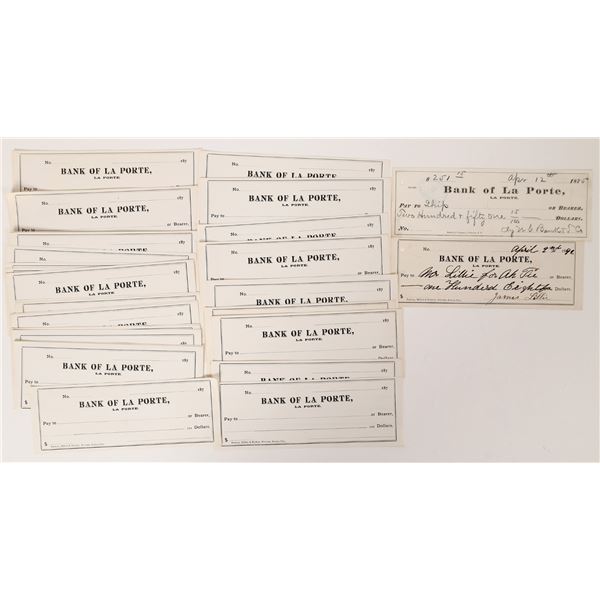 No. 187
BANK OF LA PORTE,
LA PORTE
Pay to
No. 187
BANK OF LA PORTE,
LA PORTE.
Pay to or Bearer,
BANK OF LA PORTE,
No.
BANK OF LA PORTE,
LA PORTE.
Pay to
No.
BANK OF LA PORTE,
LA PORTE.
Pay to
No. 187
BANK OF LA PORTE,
LA PORTE.
Pay to or Bearer,
Dollars.
$
No. 187
BANK OF LA PORTE,
LA PORTE.
Pay to
No. 187
BANK OF LA PORTE,
LA PORTE.
BANK OF LA PORTE
No. 187
BANK OF LA PORTE,
LA PORTE.
BANK OF LA PORTE,
BANK OF LA PORTE,
LA PORTE.
Pay to or Bearer,
Dollars.
BANK OF LA PORTE,
No. 187
BANK OF LA PORTE,
LA PORTE.
Pay to or Bearer,
Dollars.
$
$251 15 Apr 12th 1875
Bank of La Porte,
LA PORTE.
Pay to Skip or Bearer,
Two Hundred & fifty one 15/100 Dollars.
No.
No. April 2nd
BANK OF LA PORTE,
LA PORTE.
Pay to Mr Lillie for Ah Tie or Bearer,
one Hundred Dollars.
$ James